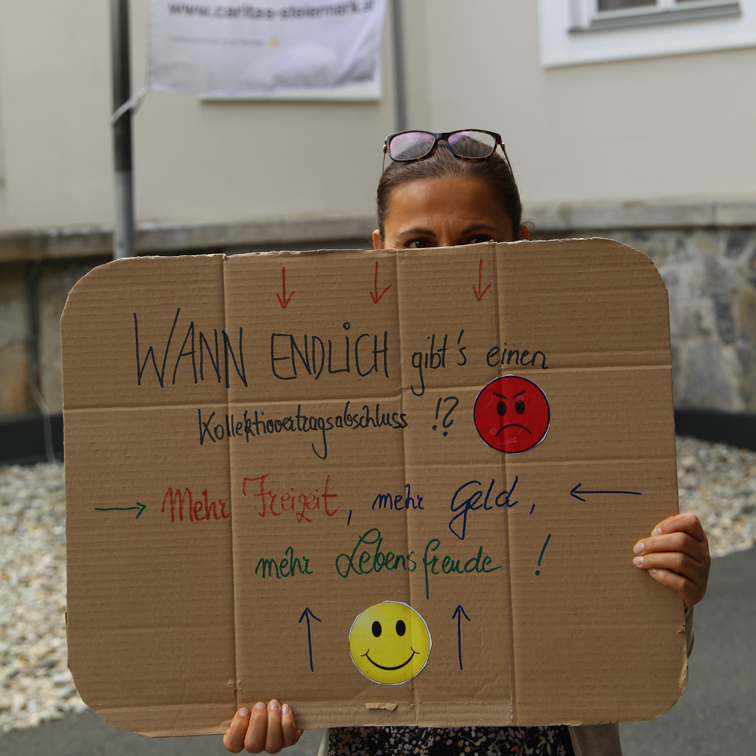 www.caritas-steiermark.at
WANN ENDLICH gibt's einen
Kollektivvertragsabschluss !?
→ Mehr Freizeit, mehr Geld, ←
mehr Lebensfreude !